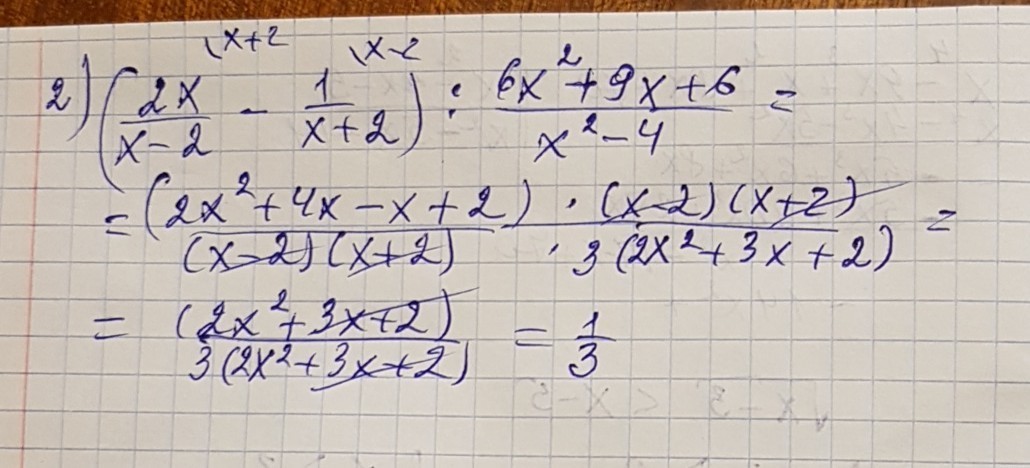 \x+2 \x-2
2) (2x/(x-2) - 1/(x+2)) : (6x²+9x+6)/(x²-4) =
= (2x²+4x-x+2)/((x-2)(x+2)) · ((x-2)(x+2))/(3(2x²+3x+2)) =
= (2x²+3x+2)/(3(2x²+3x+2)) = 1/3